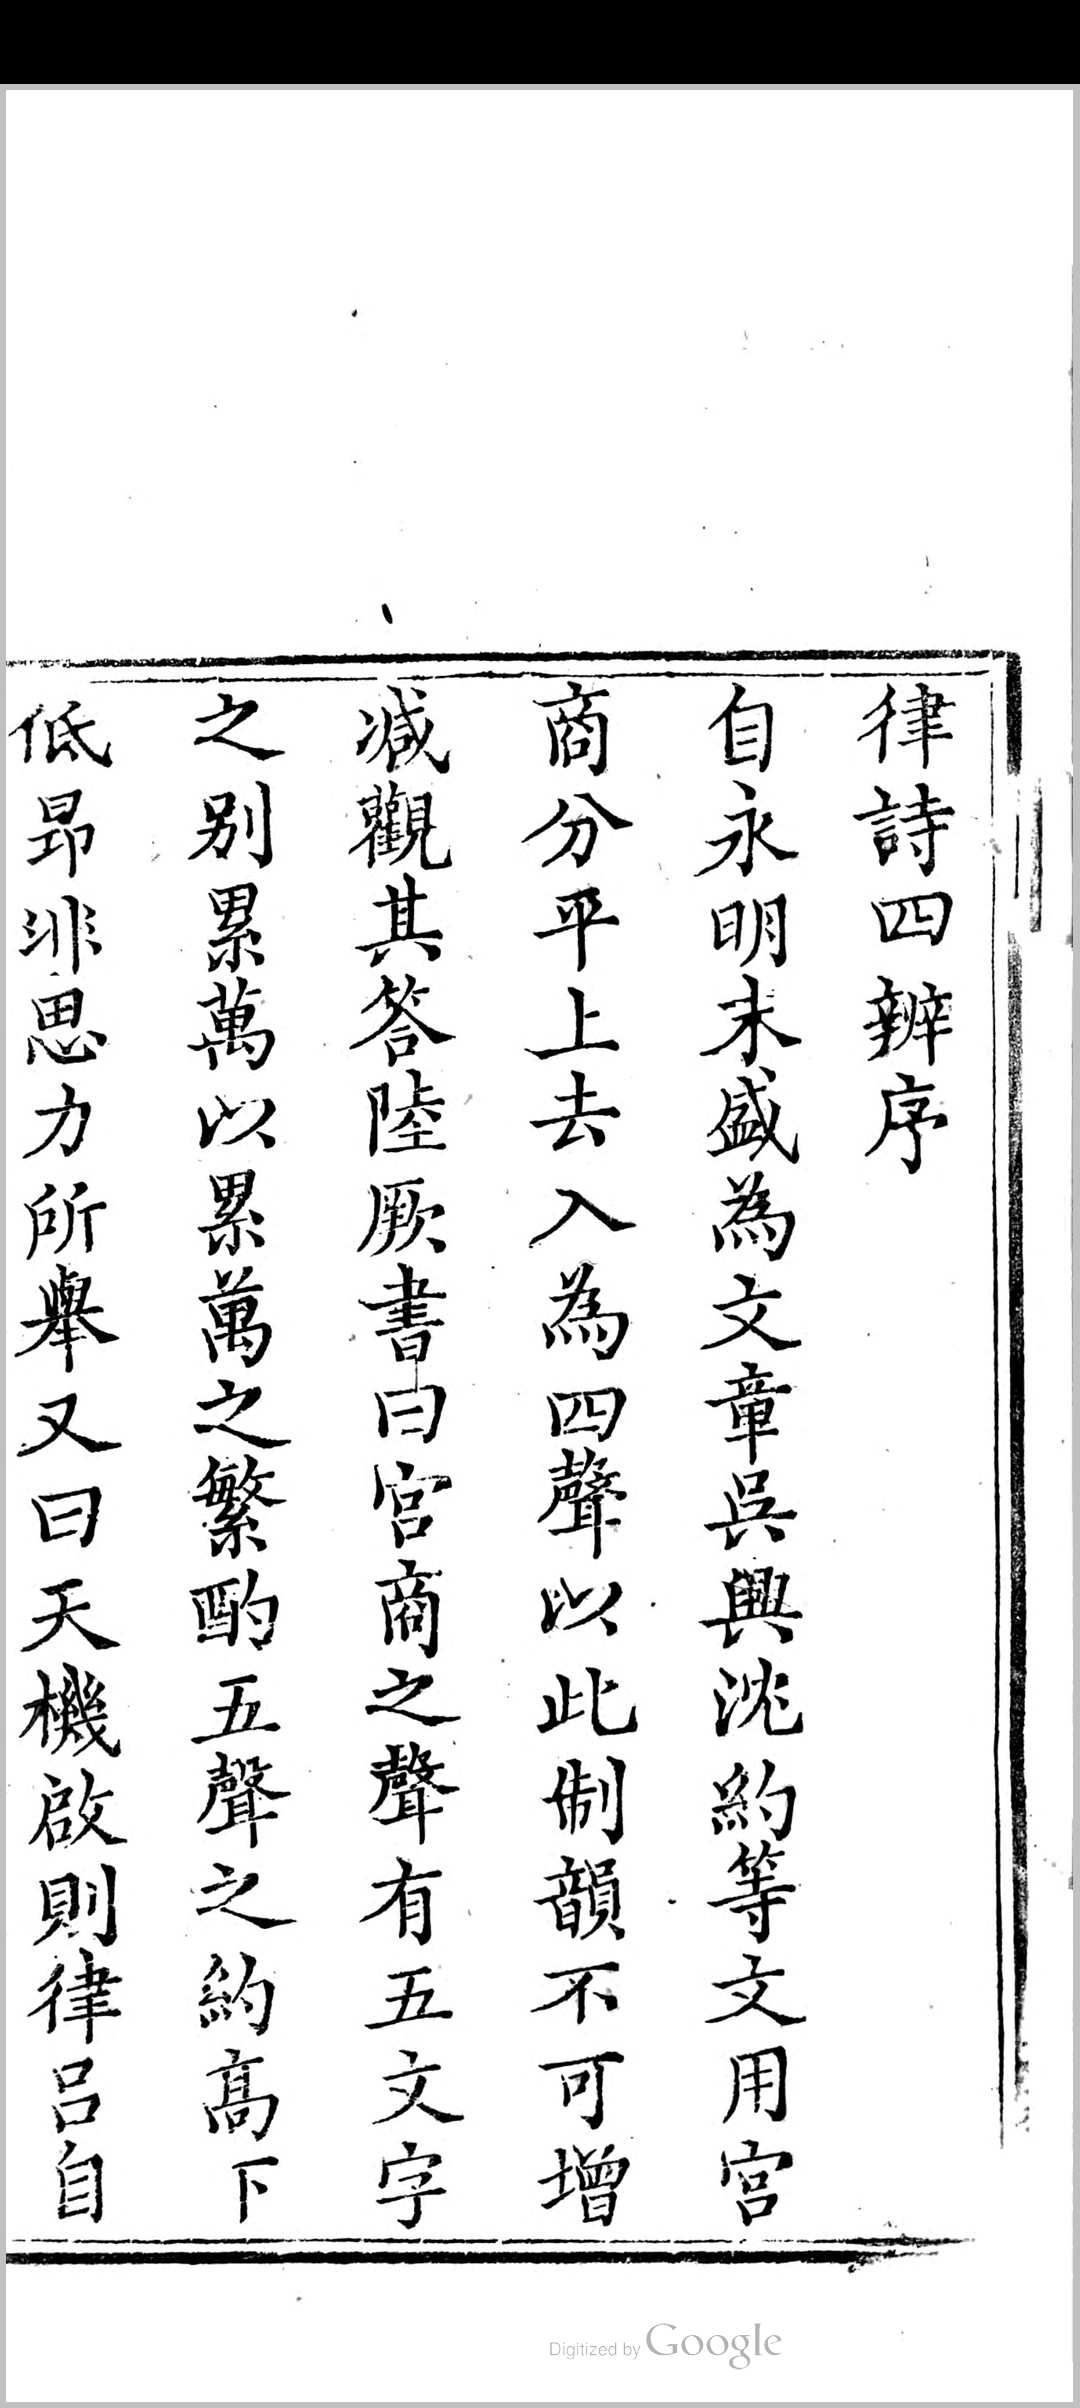 律詩四辨序
自永明末盛為文章吳興沈約等文用宮
商分平上去入為四聲以此制韻不可增
減觀其答陸厥書曰宮商之聲有五文字
之别累萬以累萬之繁酌五聲之約高下
低昂非思力所舉又曰天機啟則律呂自
Digitized by Google